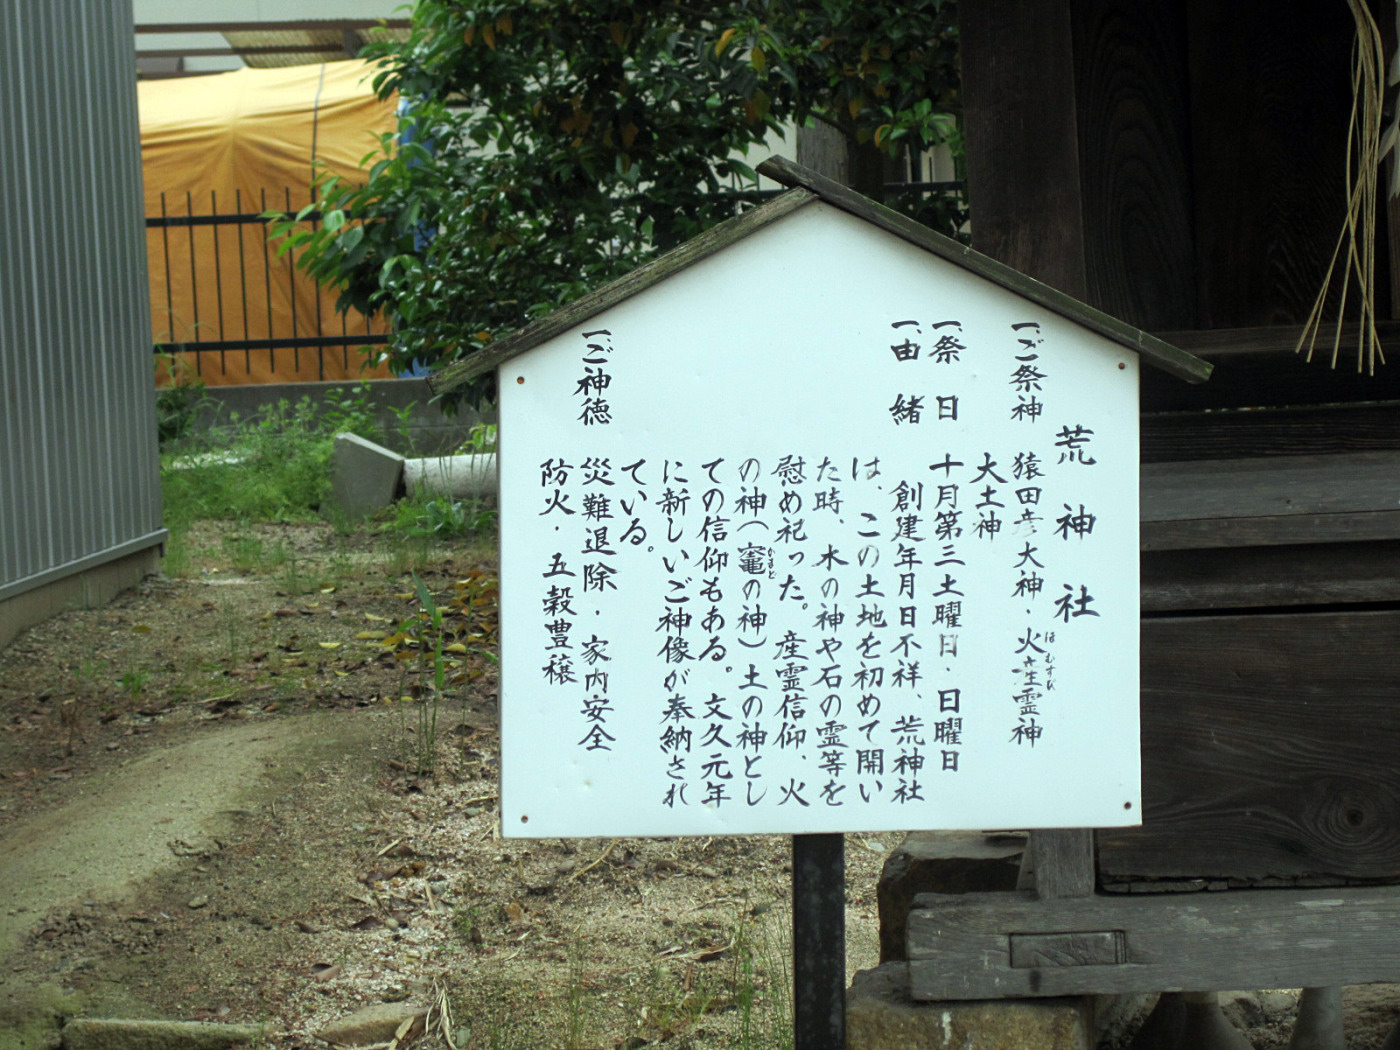 荒神社
一、ご祭神 猿田彦大神・火産霊神
ほむすび
大土神
一、祭日 十月第三土曜日・日曜日
一、由緒 創建年月日不祥、荒神社
は、この土地を初めて開い
た時、木の神や石の霊等を
慰め祀った。産霊信仰、火
の神(竈の神)土の神とし
かまど
ての信仰もある。文久元年
に新しいご神像が奉納され
ている。
一、ご神徳 災難退除・家内安全
防火・五穀豊穣